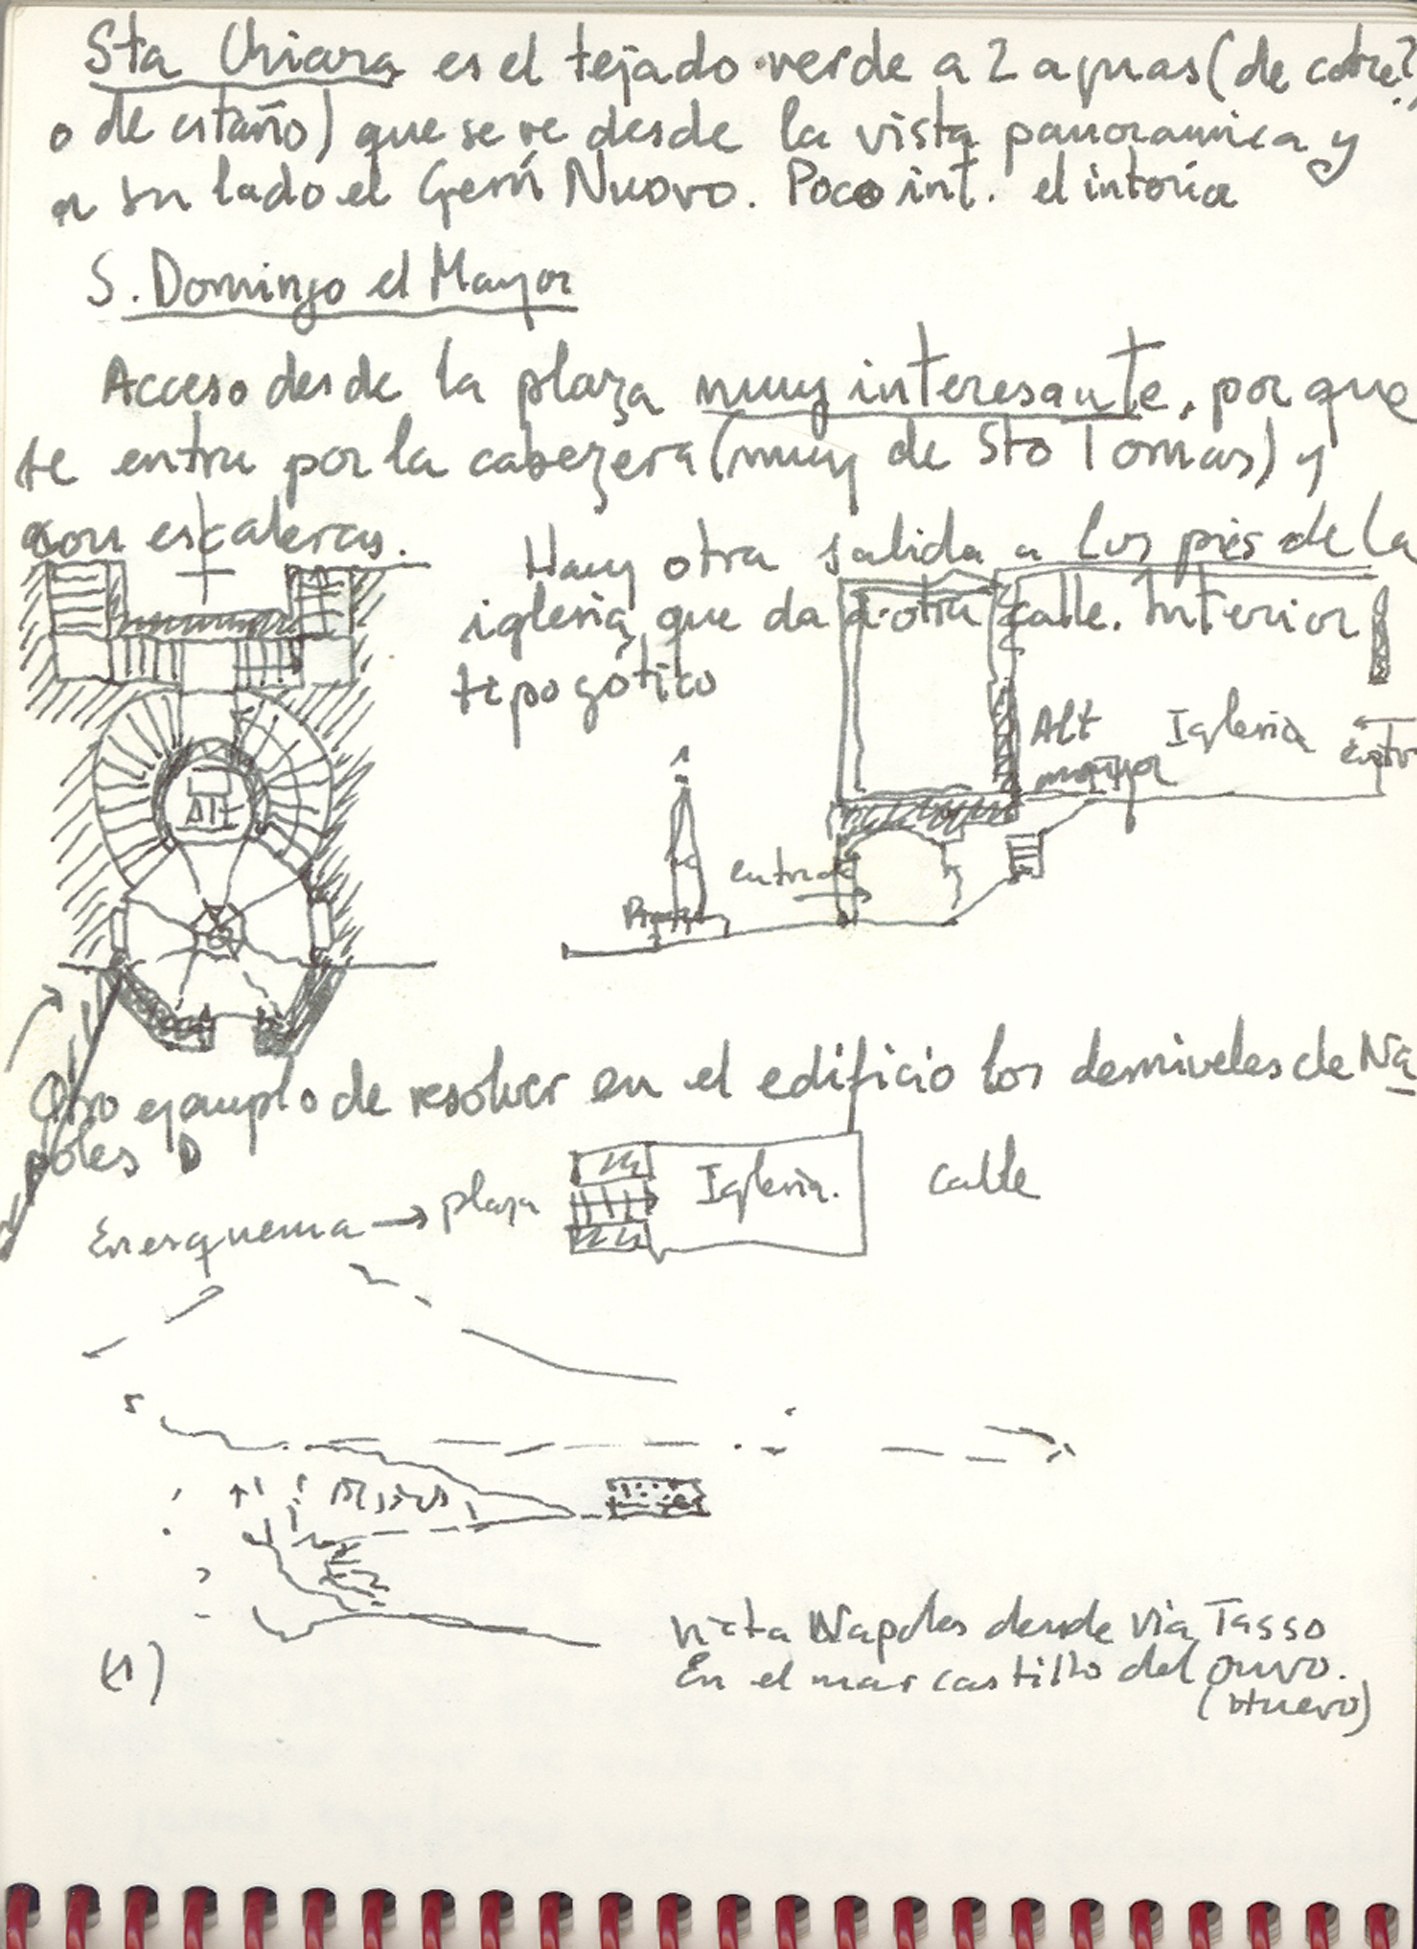 Sta Chiara es el tejado verde a 2 aguas (de cobre?
o de estaño) que se ve desde la vista panoramica y
a su lado el Gesú Nuovo. Poco int. el interior
S. Domingo el Mayor
Acceso desde la plaza muy interesante, porque
se entra por la cabezera (muy de Sto Tomas) y
con escaleras.
Hay otra salida a los pies de la
iglesia que da a otra calle. Interior
tipo gótico
Alt
mayor
Iglesia
Alt
entrada
Plaza
Otro ejemplo de resolver en el edificio los desniveles de Ná
poles
En esquema → plaza
Iglesia.
calle
vista Napoles desde Via Tasso
En el mar castillo del ouvo.
(Huevo)
(1)